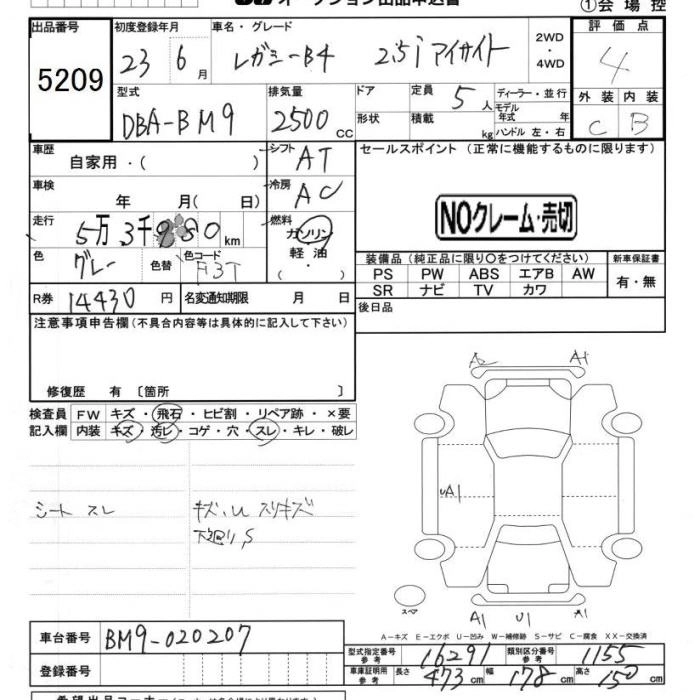 オークション出品申込書 ①会場控
出品番号 初度登録年月 車名・グレード 評価点
5209 23 6月 レガシーB4 2.5i アイサイト 2WD・4WD 4
型式 排気量 ドア 定員 5人 ディーラー・並行 外装 内装
DBA-BM9 2500cc 形状 積載 kg モデル年式 年 ハンドル 左・右 C B
車歴 自家用・( ) シフト AT セールスポイント (正常に機能するものに限ります)
車検 年 月( 日) 冷房 AC
NOクレーム・売切
走行 5万3千980km 燃料 ガソリン 軽油
色 グレー 色替 色コード F3T
装備品 (純正品に限り○をつけてください) 新車保証書
PS PW ABS エアB AW 有・無
SR ナビ TV カワ
R券 14430円 名変通知期限 月 日 後日品
注意事項申告欄 (不具合内容等は具体的に記入して下さい)
修復歴 有 〔箇所 〕
検査員記入欄 FW キズ・飛石・ヒビ割・リペア跡・×要
内装 キズ・汚レ・コゲ・穴・スレ・キレ・破レ
A2 A1
UA1
シート スレ キズ、U スリキズ
下廻り、S
スペア A1 U1 A1
A－キズ E－エクボ U－凹み W－補修跡 S－サビ C－腐食 XX－交換済
車台番号 BM9-020207
型式指定番号 参考 16291 類別区分番号 参考 1155
登録番号 車庫証明用 参考 長さ 473cm 幅 178cm 高さ 150cm